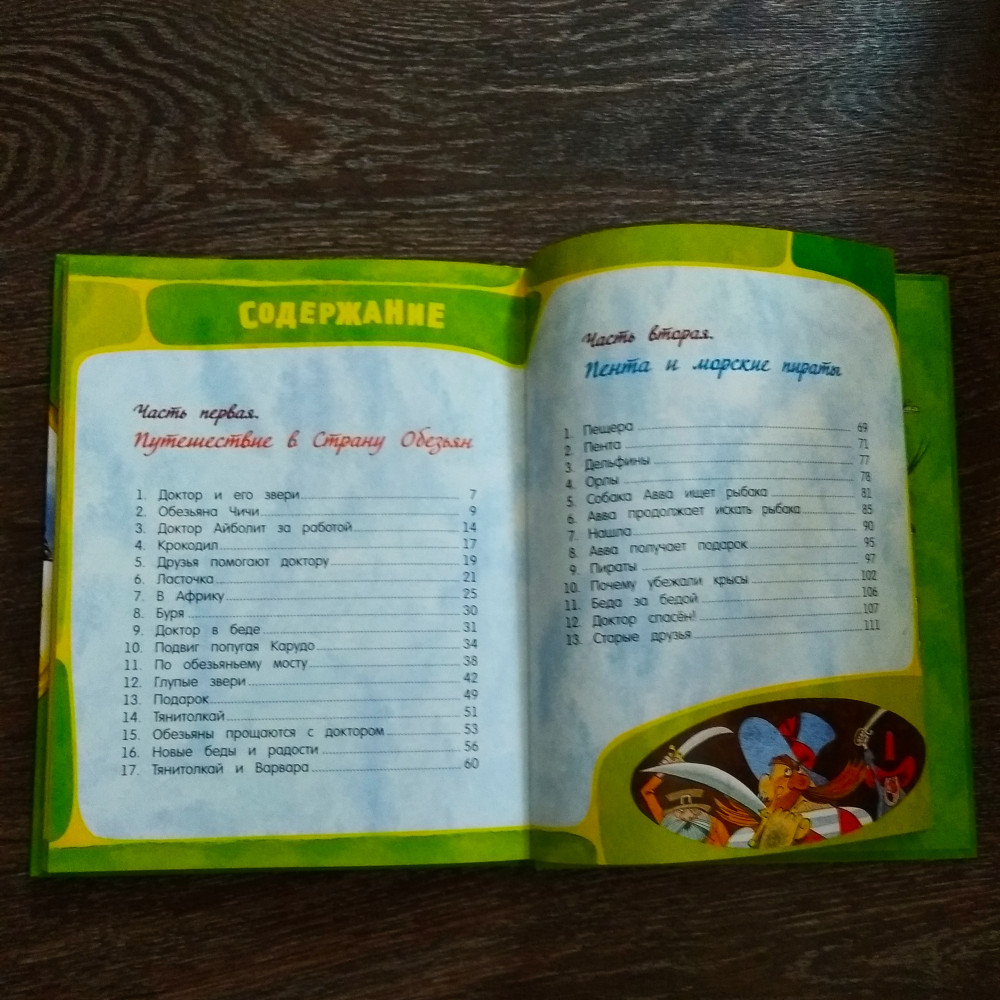 СОДЕРЖАНИЕ
Часть первая.
Путешествие в Страну Обезьян
1. Доктор и его звери 7
2. Обезьяна Чичи 9
3. Доктор Айболит за работой 14
4. Крокодил 17
5. Друзья помогают доктору 19
6. Ласточка 21
7. В Африку 25
8. Буря 30
9. Доктор в беде 31
10. Подвиг попугая Карудо 34
11. По обезьяньему мосту 38
12. Глупые звери 42
13. Подарок 49
14. Тянитолкай 51
15. Обезьяны прощаются с доктором 53
16. Новые беды и радости 56
17. Тянитолкай и Варвара 60
Часть вторая.
Пента и морские пираты
1. Пещера 69
2. Пента 71
3. Дельфины 77
4. Орлы 78
5. Собака Авва ищет рыбака 81
6. Авва продолжает искать рыбака 85
7. Нашла 90
8. Авва получает подарок 95
9. Пираты 97
10. Почему убежали крысы 102
11. Беда за бедой 106
12. Доктор спасён! 107
13. Старые друзья 111